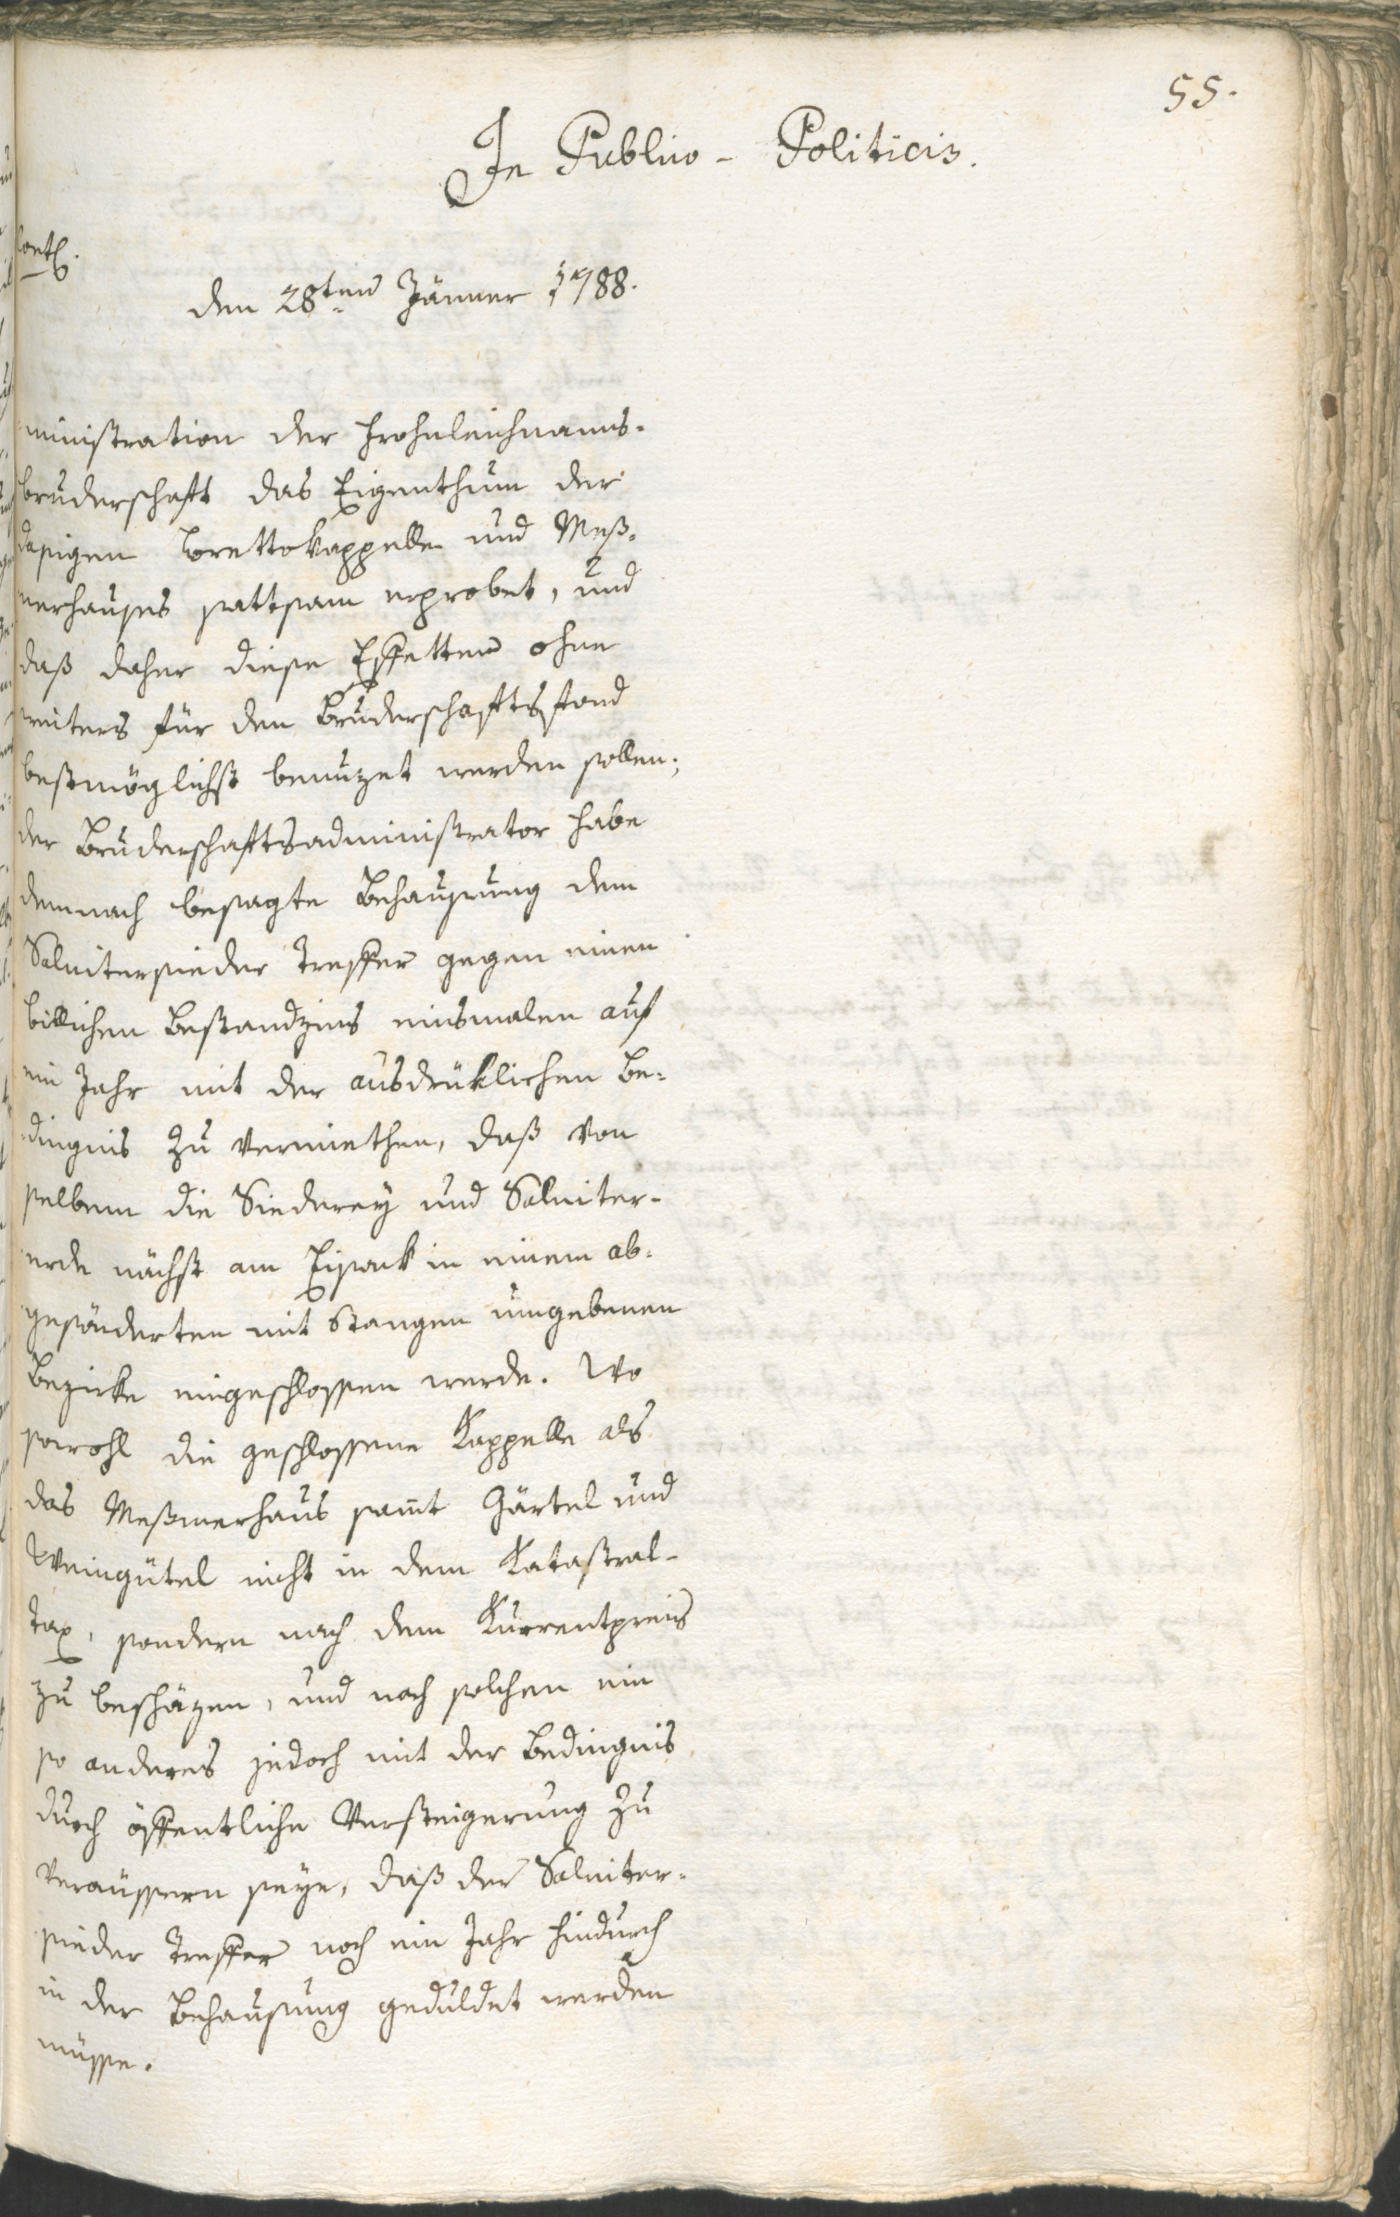 55.
In Publico - Politicis.
den 28ten Jänner 1788.
ministration der Frohnleichnams-
bruderschaft das Eigenthum der
dasigen Lorettokappelle und Meß-
nerhauses sattsam erprobet, und
daß daher diese Effekten ohne
weiters für den Bruderschaftsfond
bestmöglichst benuzet werden sollen;
der Bruderschaftsadministrator habe
demnach besagte Behausung dem
Salnitersieder Treffer gegen einen
billichen Bestandzins einsmalen auf
ein Jahr mit der ausdrüklichen Be-
dingnis zu vermiethen, daß von
selbem die Siederey und Salniter-
erde nächst am Eisack in einem ab-
gesönderten mit Stangen umgebenen
Bezirke eingeschlossen werde. Wo
sowohl die geschlossene Kappelle als
das Meßmerhaus samt Gärtel und
Weingütel nicht in dem Katastral-
tax, sondern nach dem Kurrentpreis
zu beschäzen, und nach solchen ein
so anderes jedoch mit der Bedingnis
durch öffentliche Versteigerung zu
veräussern seye, daß der Salniter-
sieder Treffer noch ein Jahr hindurch
in der Behausung geduldet werden
müsse.